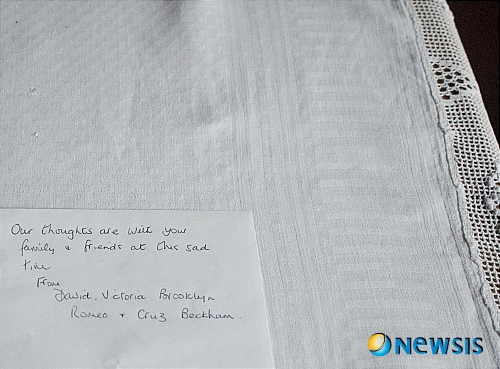 Our thoughts are with your
family & friends at this sad
time
From
David, Victoria, Brooklyn
Romeo + Cruz Beckham.
newsis